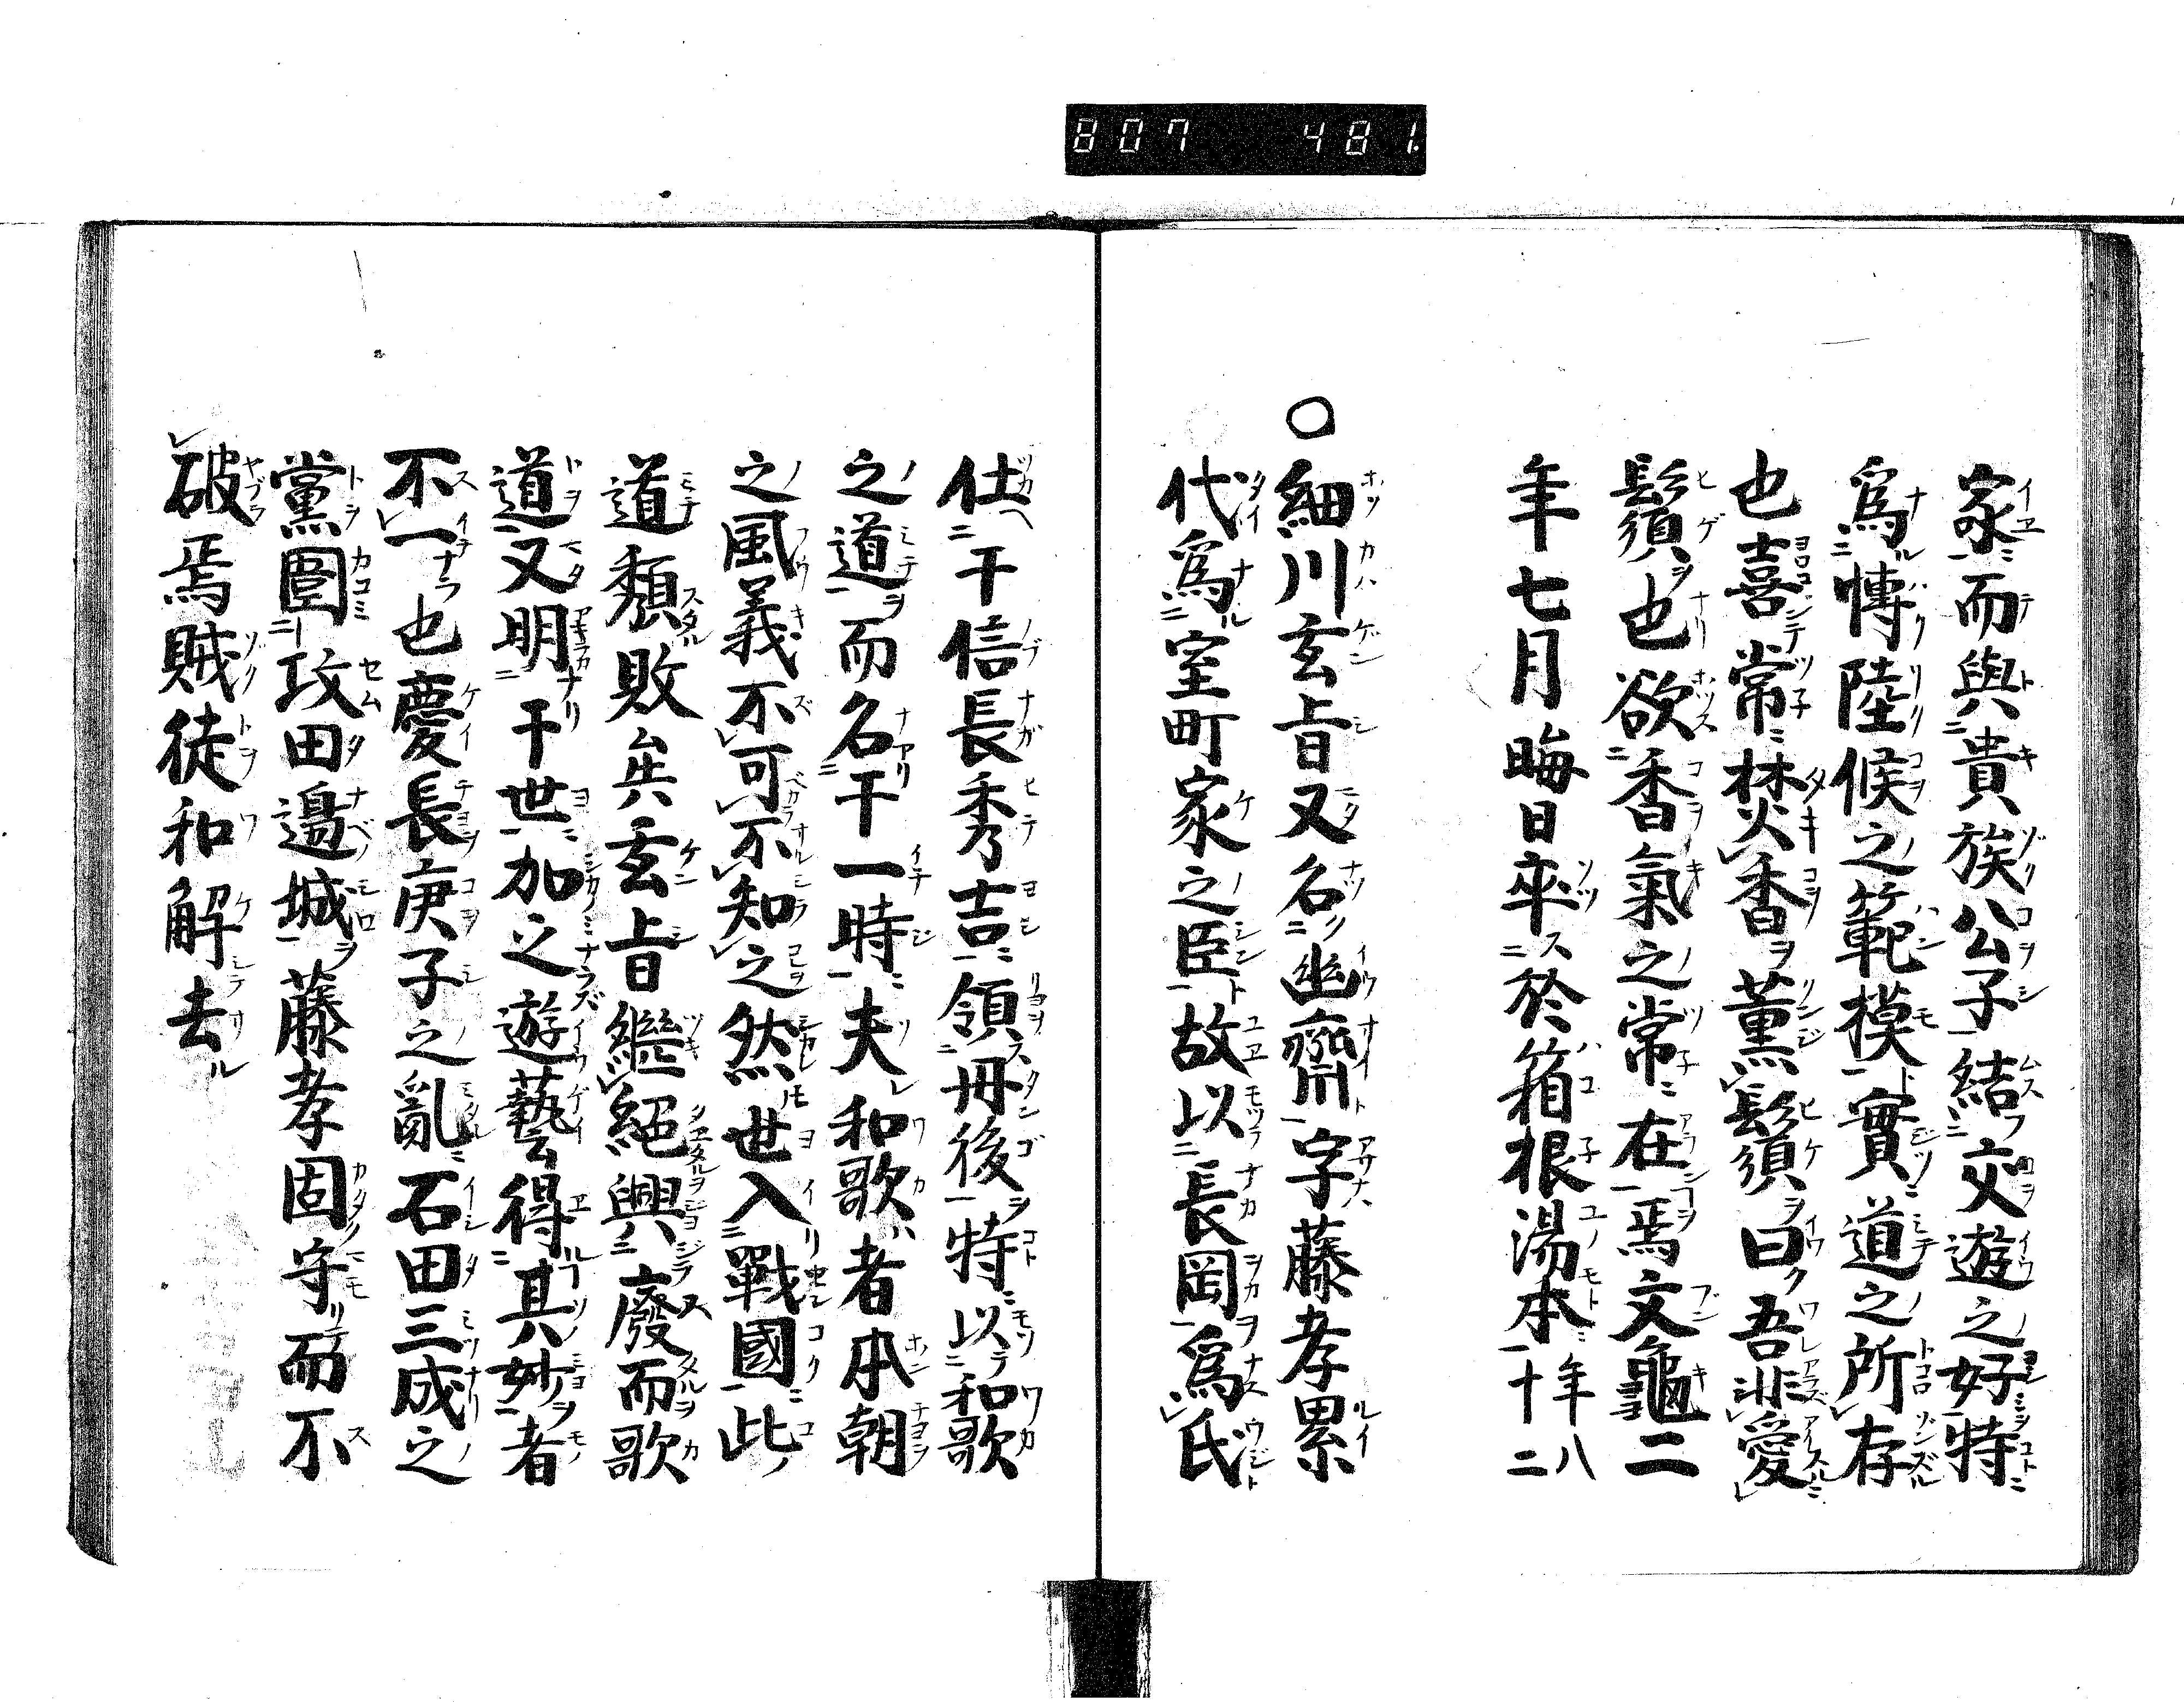 807 481.
家而與貴族公子結交遊之好特
爲博陸候之範模實道之所存
也喜常焚香薫鬚曰吾非愛
鬚也欲香氣之常在焉文龜二
年七月晦日卒於箱根湯本年八十二
○細川玄旨又名幽齋字藤孝累
代爲室町家之臣故以長岡爲氏
仕于信長秀吉領丹後特以和歌
之道而名于一時夫和歌者本朝
之風義不可不知之然世入戰國此
道頽敗矣玄旨繼絕興廢而歌
道又明于世加之遊藝得其妙者
不一也慶長庚子之亂石田三成之
黨圍攻田邊城藤孝固守而不
破焉賊徒和解去